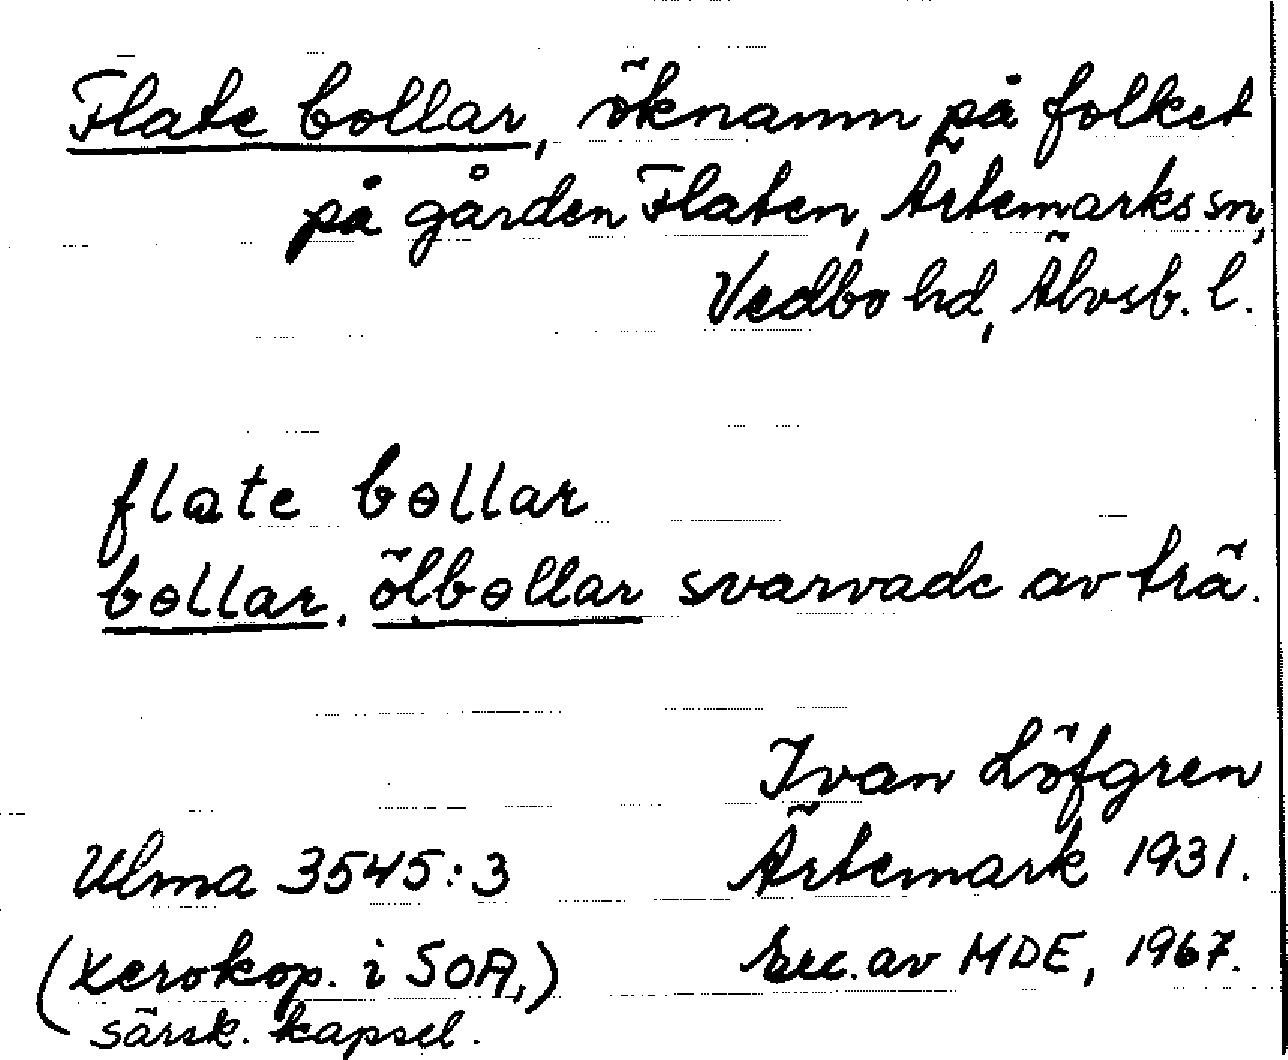 Flate bollar, öknamn på folket
på gården Flaten, Ärtemarks sn,
Vedbo hd, Älvsb. l.
flate bɵllar
bɵllar, ölbɵllar svarvade av trä.
Ivan Löfgren
Ärtemark 1931.
Ulma 3545:3
Exc. av MDE, 1967.
(xerokop. i SOA,)
särsk. kapsel.